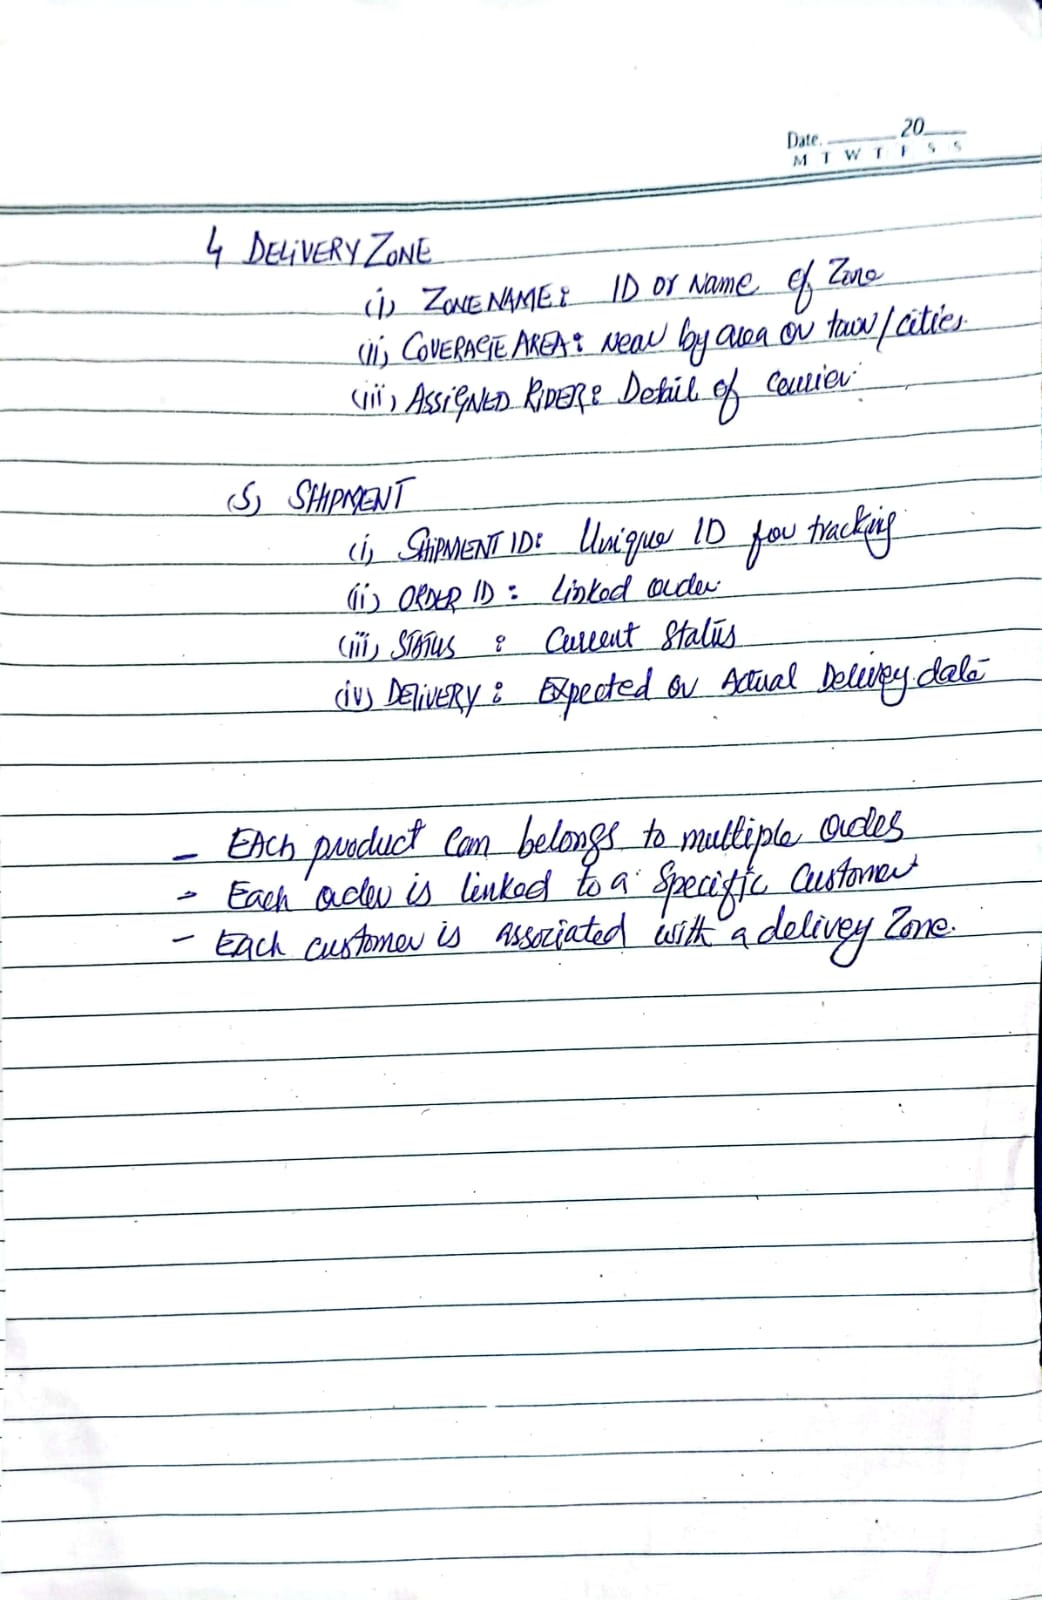 Date. 20
M T W T F S S
4 DELIVERY ZONE
(i) ZONE NAME: ID or Name of Zone
(ii) COVERAGE AREA: near by area or town/cities.
(iii) ASSIGNED RIDER: Detail of courier.
(5) SHIPMENT
(i) SHIPMENT ID: Unique ID for tracking
(ii) ORDER ID: Linked order.
(iii) STATUS : Current Status
(iv) DELIVERY: Expected or Actual Delivey date
- EAch product Can belongs to multiple ordes
- Each order is linked to a Specific Customer
- Each customer is associated with a delivey Zone.